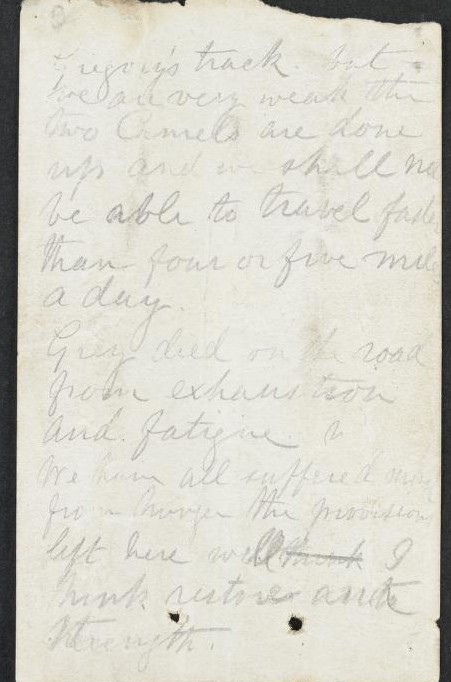 Gregory's track. but
we are very weak the
two Camels are done
up and we shall no
be able to travel faste
than four or five mile
a day.
Grey died on the road
from exhaustion
and fatigue
We have all suffered
from hunger the provision
left here will think I
think restore
Strength.